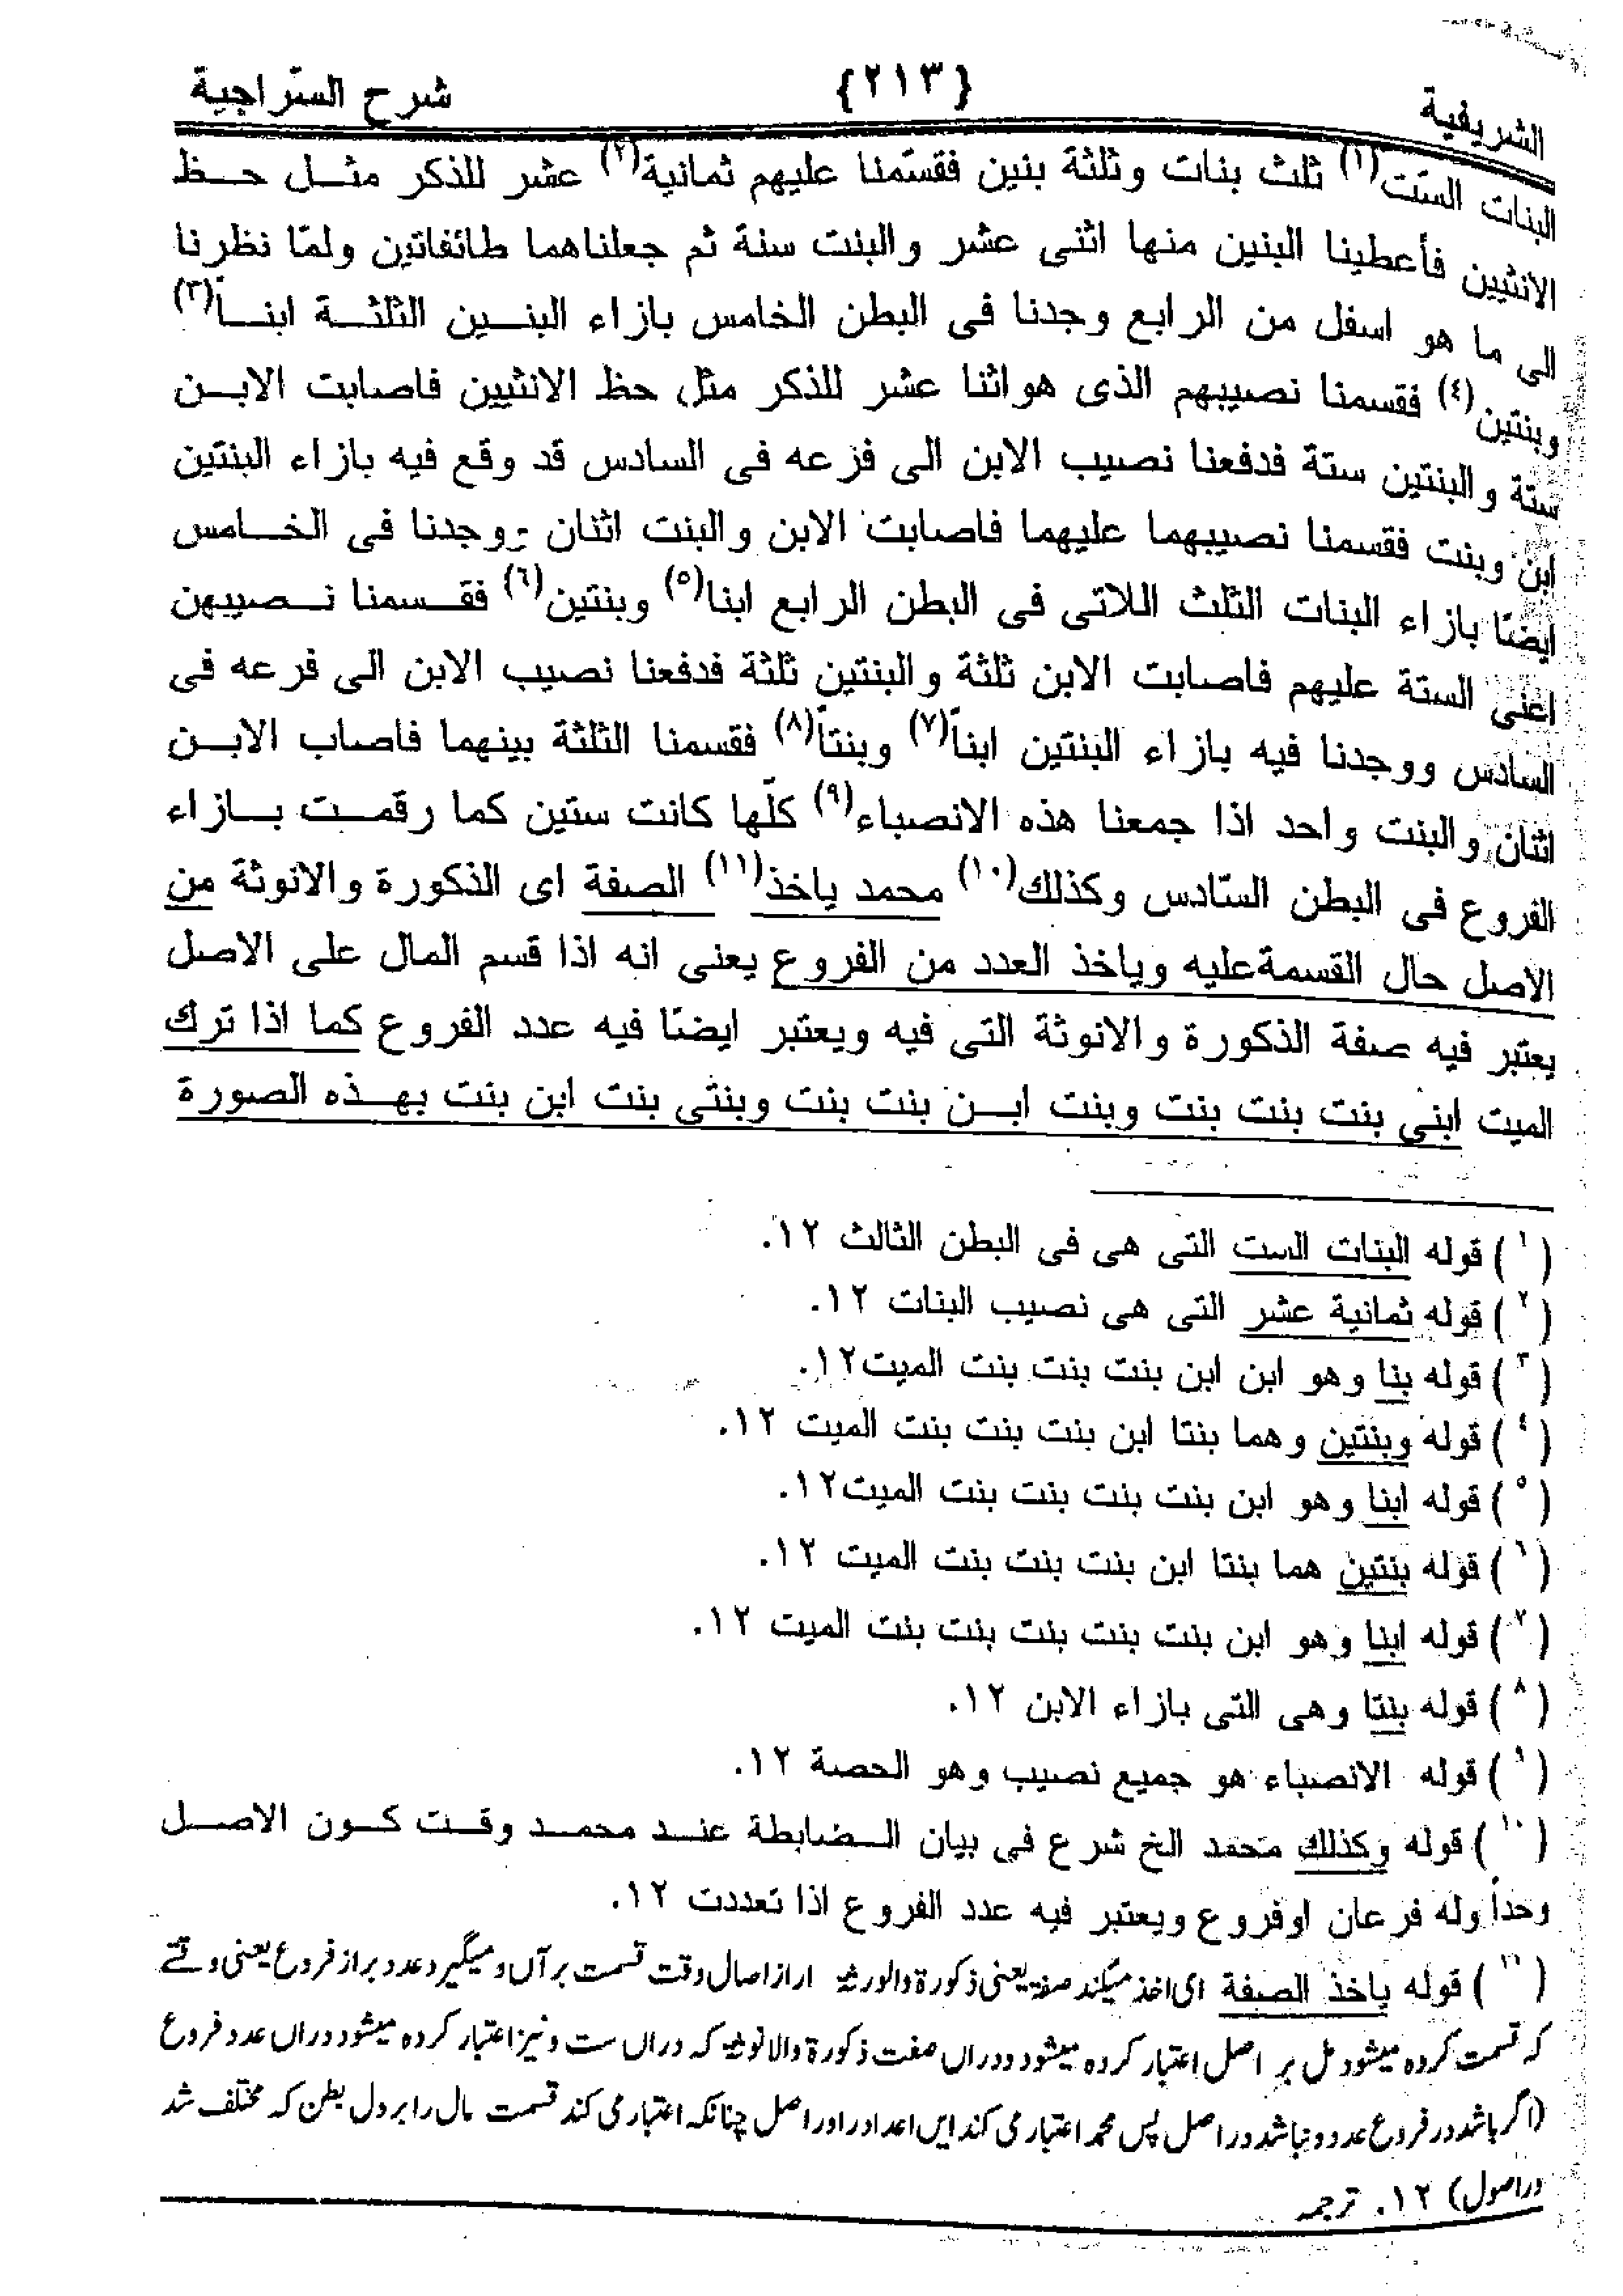 الشريفية {٢١٣} شرح السّراجية
البنات السّت(١) ثلث بنات وثلثة بنين فقسّمنا عليهم ثمانية(٢) عشر للذكر مثل حظ
الانثيين فأعطينا البنين منها اثنى عشر والبنت سنة ثم جعلناهما طائفاتين ولمّا نظرنا
الى ما هو اسفل من الرابع وجدنا فى البطن الخامس بازاء البنين الثلثة ابناً(٣)
وبنتين(٤) فقسمنا نصيبهم الذى هواثنا عشر للذكر مثل حظ الانثيين فاصابت الابن
ستة والبنتين ستة فدفعنا نصيب الابن الى فزعه فى السادس قد وقع فيه بازاء البنتين
ابن وبنت فقسمنا نصيبهما عليهما فاصابت الابن والبنت اثنان ووجدنا فى الخامس
ايضا بازاء البنات الثلث اللاتى فى البطن الرابع ابنا(٥) وبنتين(٦) فقسمنا نصيبهن
اعنى الستة عليهم فاصابت الابن ثلثة والبنتين ثلثة فدفعنا نصيب الابن الى فرعه فى
السادس ووجدنا فيه بازاء البنتين ابناً(٧) وبنتاً(٨) فقسمنا الثلثة بينهما فاصاب الابن
اثنان والبنت واحد اذا جمعنا هذه الانصباء(٩) كلّها كانت ستين كما رقمت بازاء
الفروع فى البطن السّادس وكذلك(١٠) محمد ياخذ(١١) الصفة اى الذكورة والانوثة من
الاصل حال القسمةعليه وياخذ العدد من الفروع يعنى انه اذا قسم المال على الاصل
يعتبر فيه صفة الذكورة والانوثة التى فيه ويعتبر ايضا فيه عدد الفروع كما اذا ترك
الميت ابنى بنت بنت بنت وبنت ابن بنت بنت وبنتى بنت ابن بنت بهذه الصورة
(١) قوله البنات الست التى هى فى البطن الثالث ١٢.
(٢) قوله ثمانية عشر التى هى نصيب البنات ١٢.
(٣) قوله بنا وهو ابن ابن بنت بنت بنت الميت١٢.
(٤) قوله وبنتين وهما بنتا ابن بنت بنت بنت الميت ١٢.
(٥) قوله ابنا وهو ابن بنت بنت بنت بنت الميت١٢.
(٦) قوله بنتين هما بنتا ابن بنت بنت بنت الميت ١٢.
(٧) قوله ابنا وهو ابن بنت بنت بنت بنت بنت الميت ١٢.
(٨) قوله بنتا وهى التى بازاء الابن ١٢.
(٩) قوله الانصباء هو جميع نصيب وهو الحصة ١٢.
(١٠) قوله وكذلك محمد الخ شرع فى بيان الضابطة عند محمد وقت كون الاصل
وحداً وله فرعان اوفروع ويعتبر فيه عدد الفروع اذا تعددت ١٢.
(١١) قوله ياخذ الصفة اى اخذ میکند صفۃ یعنی ذکورۃ والورثۃ ار از اصال وقت قسمت بر آں و میگیرد عدد بر از فروع یعنی وقتے
کہ قسمت کردہ میشود مل بر اصل اعتبار کردہ میشود ودراں صفت ذکورۃ والانوثۃ کہ دراں ست و نیز اعتبار کردہ میشود دراں عدد فروع
(اگر باشد در فروع عدد و نباشد در اصل پس محمد اعتبار می کند ایں اعداد را در اصل چنانکہ اعتبار می کند قسمت مال را بر دل بطن کہ مختلف شد
در اصول) ١٢. ترجمہ